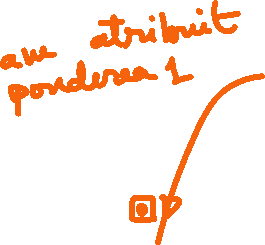 am atribuit
ponderea 1